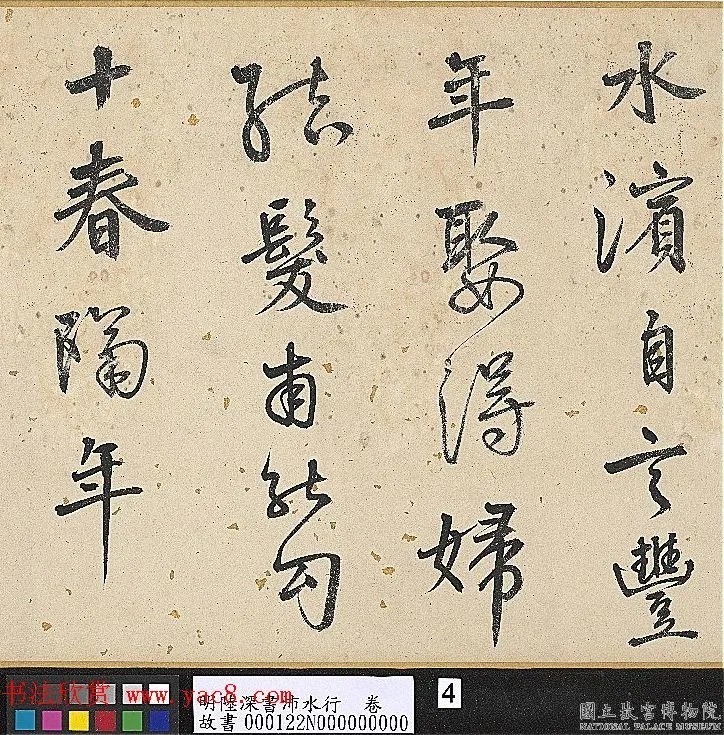 水濱自言豐
年娶得婦
結髮甫能勾
十春隔年
书法欣赏 www.yac8.com
明陸深書沛水行 卷
故書 000122N000000000
4
國立故宮博物院
NATIONAL PALACE MUSEUM